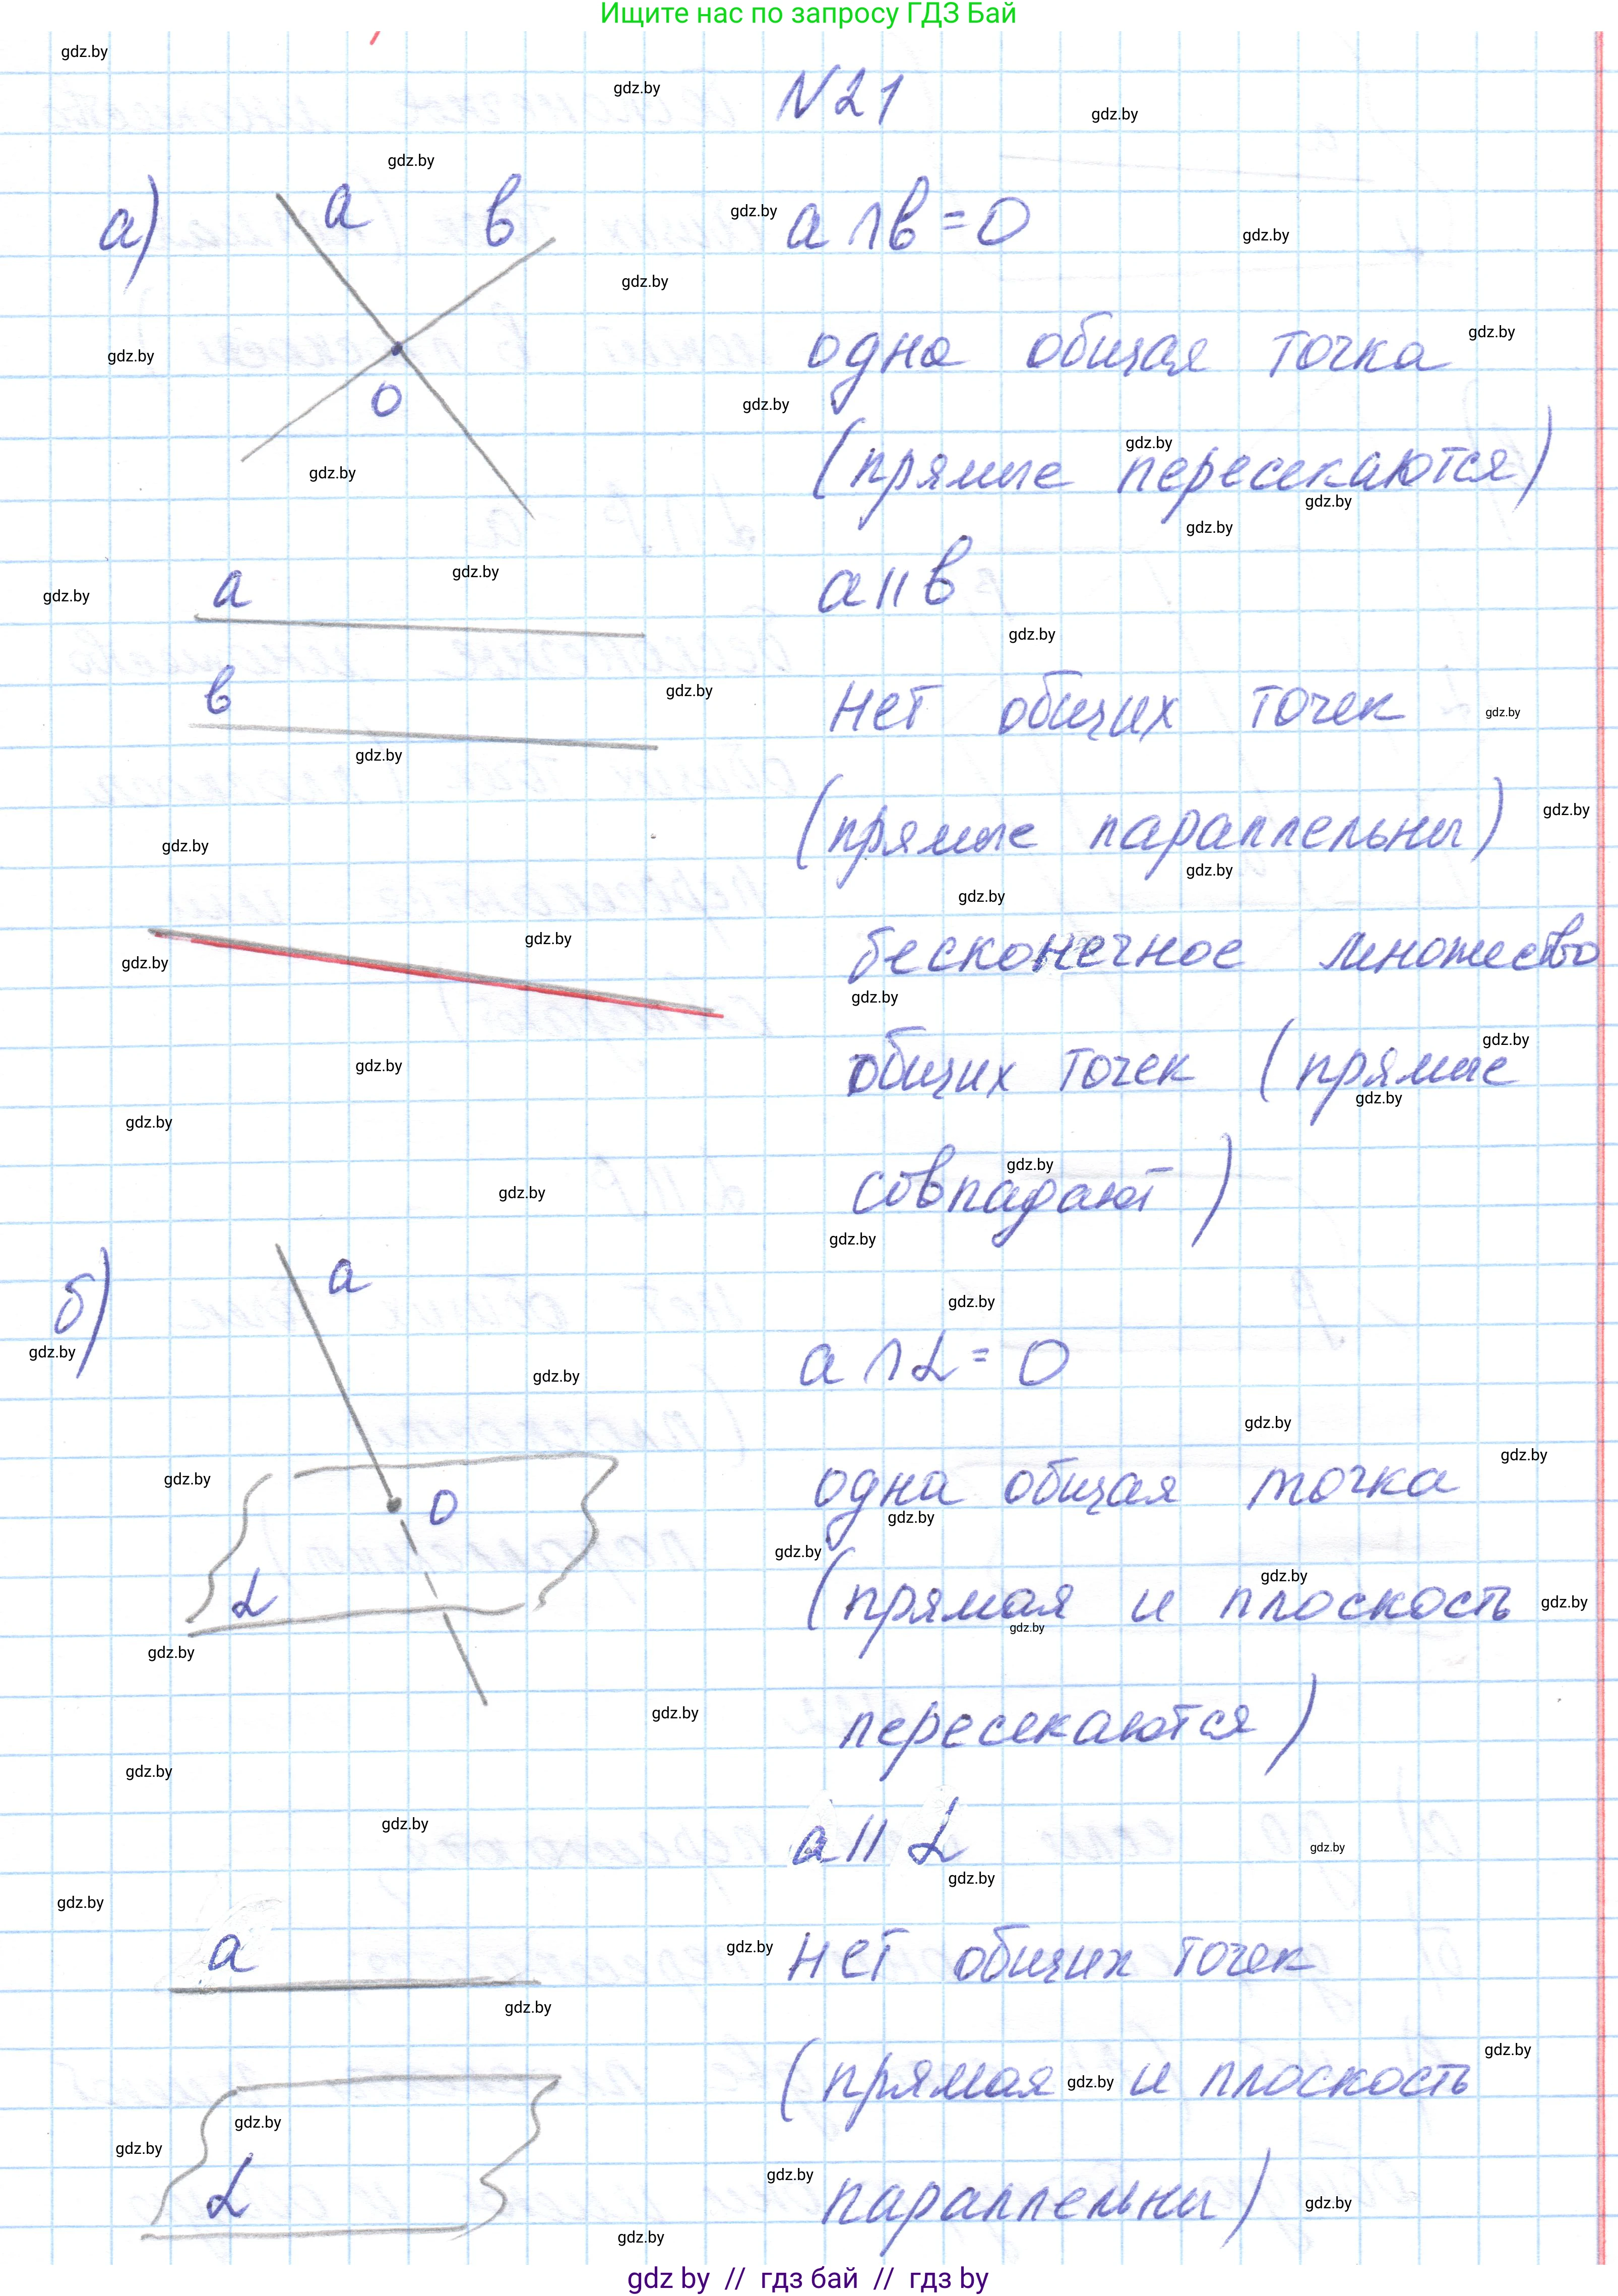 Ищите нас по запросу ГДЗ Бай
N21
а) a в a∩в=0
0
одна общая точка
(прямые пересекаются)
a a||в
в нет общих точек
(прямые параллельны)
бесконечное множество
общих точек (прямые
совпадают)
б) a
a∩α=0
0 одна общая точка
α (прямая и плоскость
пересекаются)
a||α
a нет общих точек
(прямая и плоскость
α параллельны)
gdz by // гдз бай // гдз by